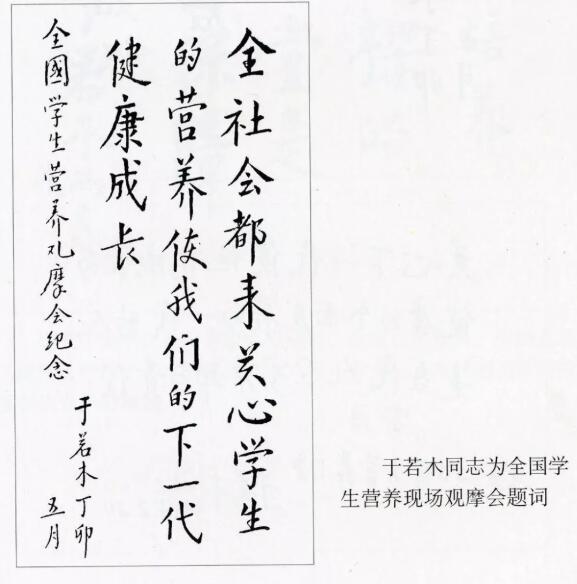 全社会都来关心学生
的营养使我们的下一代
健康成长
全國学生营养观摩会纪念
于若木丁卯
五月
于若木同志为全国学
生营养现场观摩会题词